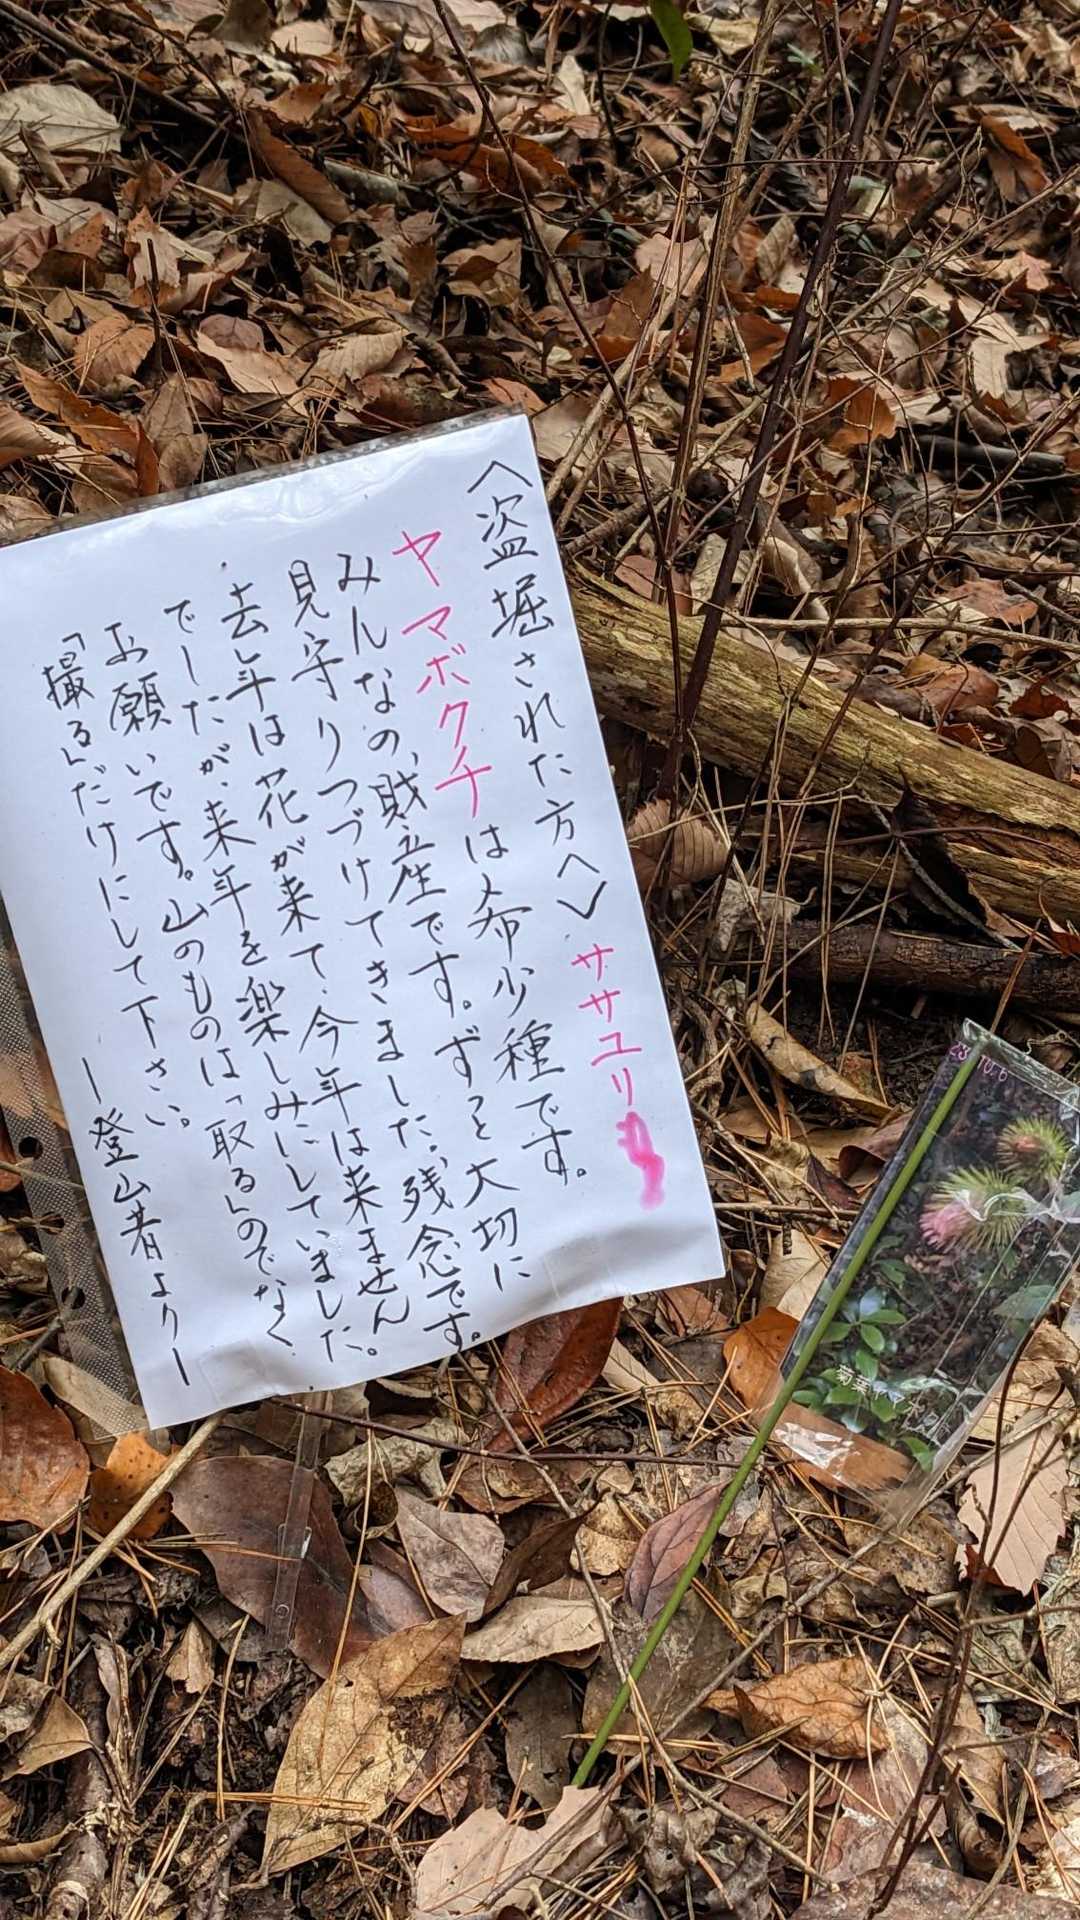 〈盗堀された方へ〉 ササユリ
ヤマボクチは希少種です。
みんなの財産です。ずっと大切に
見守りつづけてきました。残念です。
去年は花が来て、今年は来ません
でしたが、来年を楽しみにしていました。
お願いです。山のものは「取る」のでなく
「撮る」だけにして下さい。
ー登山者よりー
23 10.6